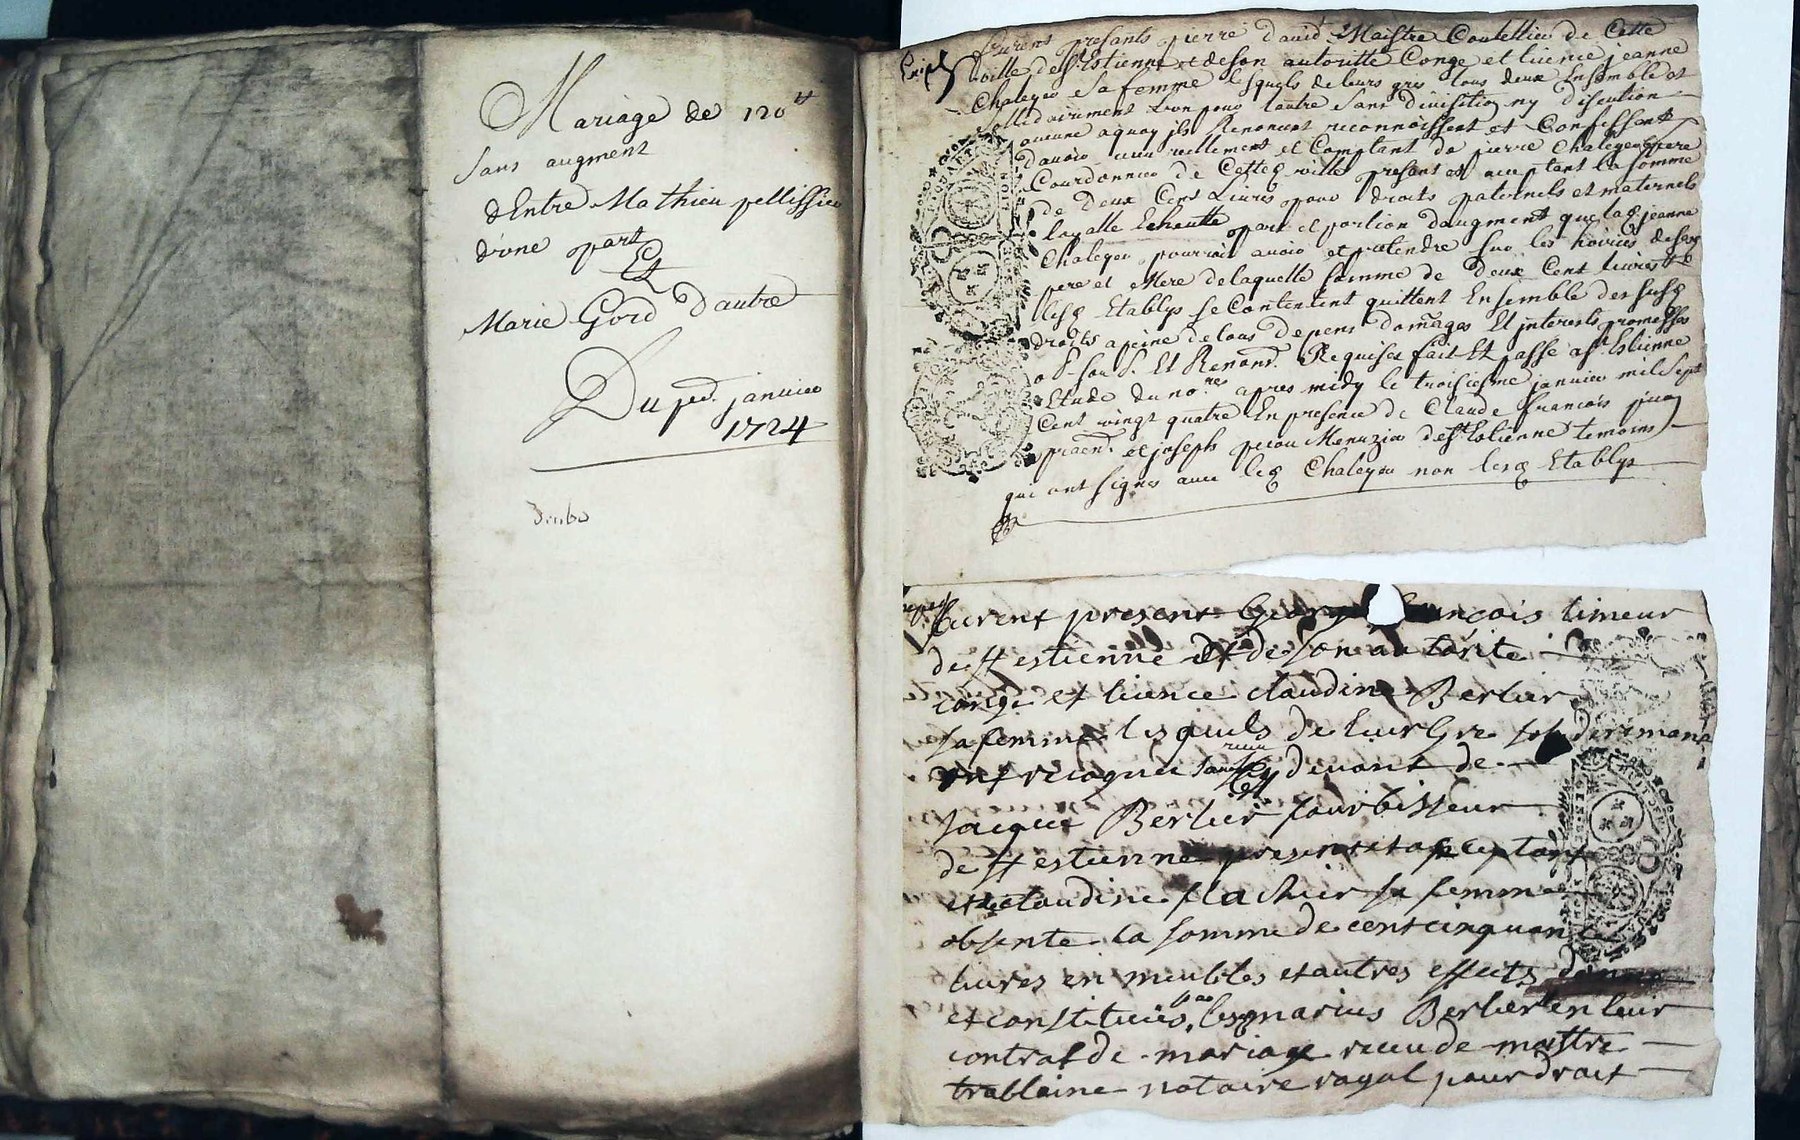 Mariage de 120ᵗᵗ
sans augment
d'Entre Mathieu pellissier
d'une part
Et
Marie Gord d'autre
Du 3e. janvier
1724
furent presants pierre david Maistre Coutellier de Cette
ville de st Estienne et de son autoritte Conge et licence jeanne
Chaleyer sa femme lesquels de leurs gres tous deux Ensemble et
sollidairement l'un pour lautre sans division ny discution
aucune aquoy ils Renoncent reconnoissent et Confessent
d'avoir reellement et Comptant de pierre Chaleyer frere
Courdonnier de Cette ville presant et aceptant la somme
de deux Cent Livres pour droits paternels et maternels
part et portion daugment que lad jeanne
Chaleyer pourroit avoir et pretendre sur les hoiries de ses
pere et Mere de laquelle somme de deux Cent livres
lesd Etablys se Contentent quittent Ensemble des susd
droits a peine de tous depens domages Et interests promesses
Et Renonᵗ. Requises fait Et passé a st Estienne
Etude du noʳᵉ apres midy le troisiesme janvier mil sept
Cent vingt quatre En presence de Claude francois
praenᵗ. et joseph Menuzier de st Estienne temoins
qui ont signes avec led Chaleyer non lesd Etablys
furent present francois limeur
de st estienne et de son autorite
conge et licence claudine Berlier
sa femme lesquels de leur gre
ont recognu devant de
jacques Berlier fourbisseur
de st estienne present et apceptant
et claudine flachier sa femme
absente la somme de cent cinquante
livres en meubles et autres effects
et constitues maries Berlier en leur
contrat de mariage receu de maistre
trablaine notaire royal pour droit